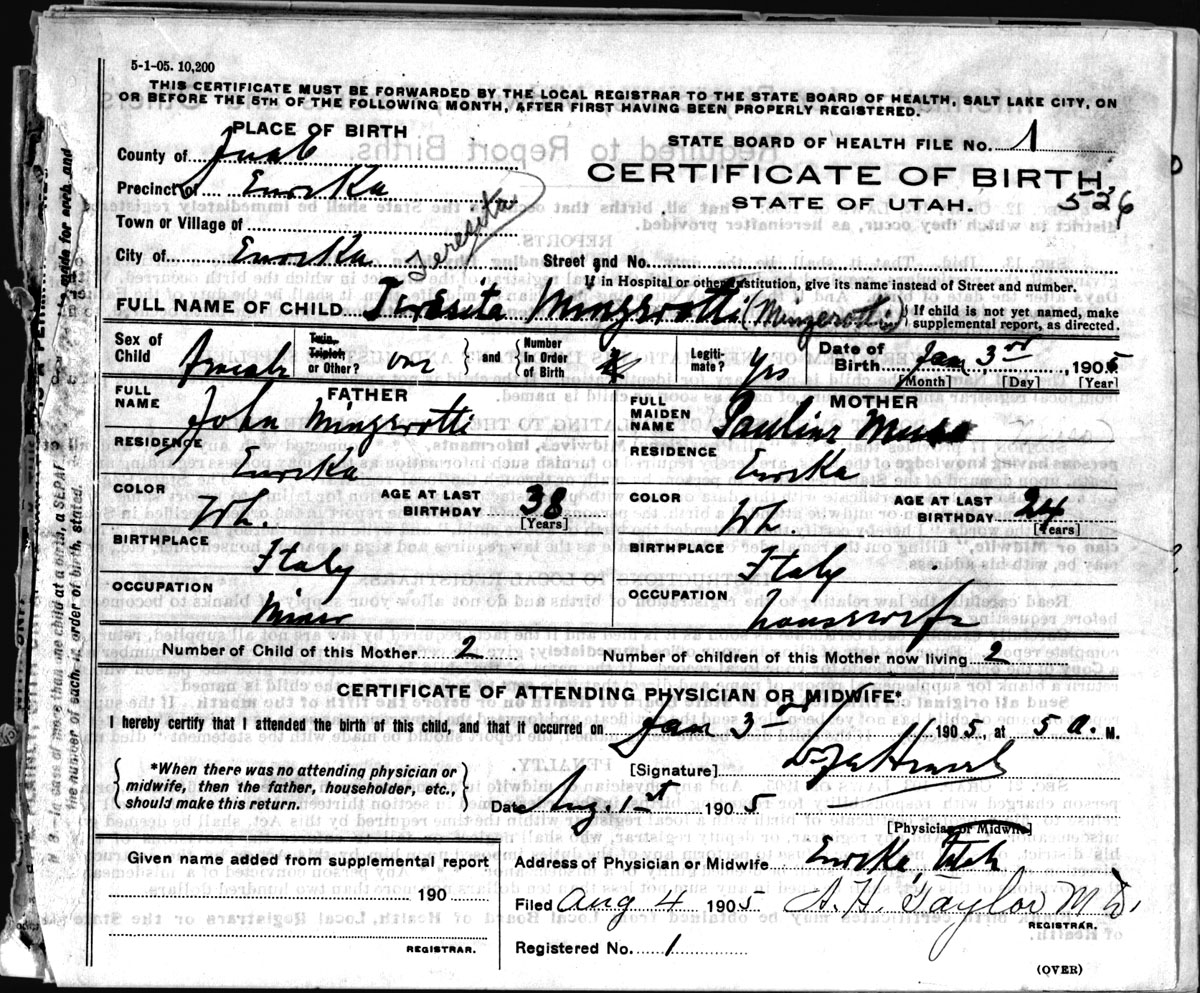 5-1-05. 10,200
THIS CERTIFICATE MUST BE FORWARDED BY THE LOCAL REGISTRAR TO THE STATE BOARD OF HEALTH, SALT LAKE CITY, ON
OR BEFORE THE 5TH OF THE FOLLOWING MONTH, AFTER FIRST HAVING BEEN PROPERLY REGISTERED.
PLACE OF BIRTH
STATE BOARD OF HEALTH FILE No. 1
County of Juab
CERTIFICATE OF BIRTH
526
Precinct of Eureka
STATE OF UTAH.
Town or Village of
Teresita
City of Eureka
Street and No.
If in Hospital or other Institution, give its name instead of Street and number.
FULL NAME OF CHILD Teresita Mingerotti (Mingerotti)
If child is not yet named, make
supplemental report, as directed.
Sex of Child Female
Twin, Triplet, or Other? one
and
Number in Order of Birth
Legitimate? Yes
Date of Birth Jan 3rd, 1905
[Month] [Day] [Year]
FATHER
FULL NAME John Mingerotti
RESIDENCE Eureka
COLOR Wh.
AGE AT LAST BIRTHDAY 38
[Years]
BIRTHPLACE Italy
OCCUPATION Miner
MOTHER
FULL MAIDEN NAME Pauline Musso
RESIDENCE Eureka
COLOR Wh.
AGE AT LAST BIRTHDAY 24
[Years]
BIRTHPLACE Italy
OCCUPATION housewife
Number of Child of this Mother 2
Number of children of this Mother now living 2
CERTIFICATE OF ATTENDING PHYSICIAN OR MIDWIFE*
I hereby certify that I attended the birth of this child, and that it occurred on Jan 3rd 1905, at 5 a. M.
*When there was no attending physician or
midwife, then the father, householder, etc.,
should make this return.
[Signature]
Date Aug 1st 1905
[Physician or Midwife]
Given name added from supplemental report
190
REGISTRAR.
Address of Physician or Midwife Eureka, Utah
Filed Aug 4 1905 A. H. Taylor M D.
REGISTRAR.
Registered No. 1
(OVER)